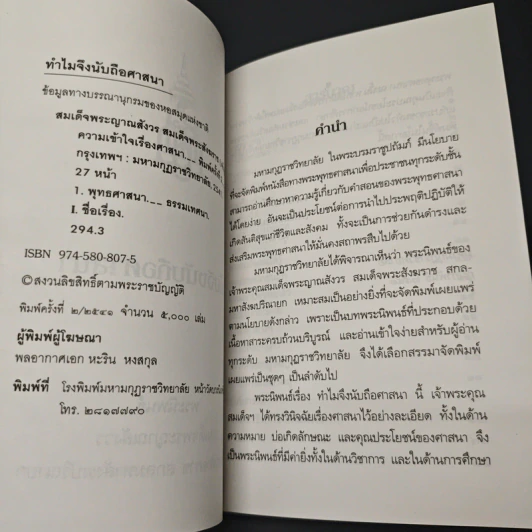 ทำไมจึงนับถือศาสนา
ข้อมูลทางบรรณานุกรมของหอสมุดแห่งชาติ
สมเด็จพระญาณสังวร สมเด็จพระสังฆราช
ความเข้าใจเรื่องศาสนา.__ พิมพ์ครั้งที่
กรุงเทพฯ : มหามกุฏราชวิทยาลัย,
27 หน้า
1. พุทธศาสนา.__ ธรรมเทศนา.
I. ชื่อเรื่อง.
294.3
ISBN 974-580-807-5
©สงวนลิขสิทธิ์ตามพระราชบัญญัติ
พิมพ์ครั้งที่ ๒/๒๕๔๑ จำนวน ๕,๐๐๐ เล่ม
ผู้พิมพ์ผู้โฆษณา
พลอากาศเอก หะริน หงสกุล
พิมพ์ที่ โรงพิมพ์มหามกุฏราชวิทยาลัย หน้าวัดบวรนิเวศ
โทร. ๒๘๑๗๗๙๐
คำนำ
มหามกุฏราชวิทยาลัย ในพระบรมราชูปถัมภ์ มีนโยบาย
ที่จะจัดพิมพ์หนังสือทางพระพุทธศาสนาเพื่อประชาชนทุกระดับชั้น
สามารถอ่านศึกษาหาความรู้เกี่ยวกับคำสอนของพระพุทธศาสนา
ได้โดยง่าย อันจะเป็นประโยชน์ต่อการนำไปประพฤติปฏิบัติให้
เกิดสันติสุขแก่ชีวิตและสังคม ทั้งจะเป็นการช่วยกันดำรงและ
ส่งเสริมพระพุทธศาสนาให้มั่นคงสถาพรสืบไปด้วย
มหามกุฏราชวิทยาลัยได้พิจารณาเห็นว่า พระนิพนธ์ของ
เจ้าพระคุณสมเด็จพระญาณสังวร สมเด็จพระสังฆราช สกล-
มหาสังฆปริณายก เหมาะสมเป็นอย่างยิ่งที่จะจัดพิมพ์เผยแพร่
ตามนโยบายดังกล่าว เพราะเป็นบทพระนิพนธ์ที่ประกอบด้วย
เนื้อหาสาระครบถ้วนบริบูรณ์ และอ่านเข้าใจง่ายสำหรับผู้อ่าน
ทุกระดับ มหามกุฏราชวิทยาลัย จึงได้เลือกสรรมาจัดพิมพ์
เผยแพร่เป็นชุดๆ เป็นลำดับไป
พระนิพนธ์เรื่อง ทำไมจึงนับถือศาสนา นี้ เจ้าพระคุณ
สมเด็จฯ ได้ทรงวินิจฉัยเรื่องศาสนาไว้อย่างละเอียด ทั้งในด้าน
ความหมาย บ่อเกิดลักษณะ และคุณประโยชน์ของศาสนา จึง
เป็นพระนิพนธ์ที่มีค่ายิ่งทั้งในด้านวิชาการ และในด้านการศึกษา